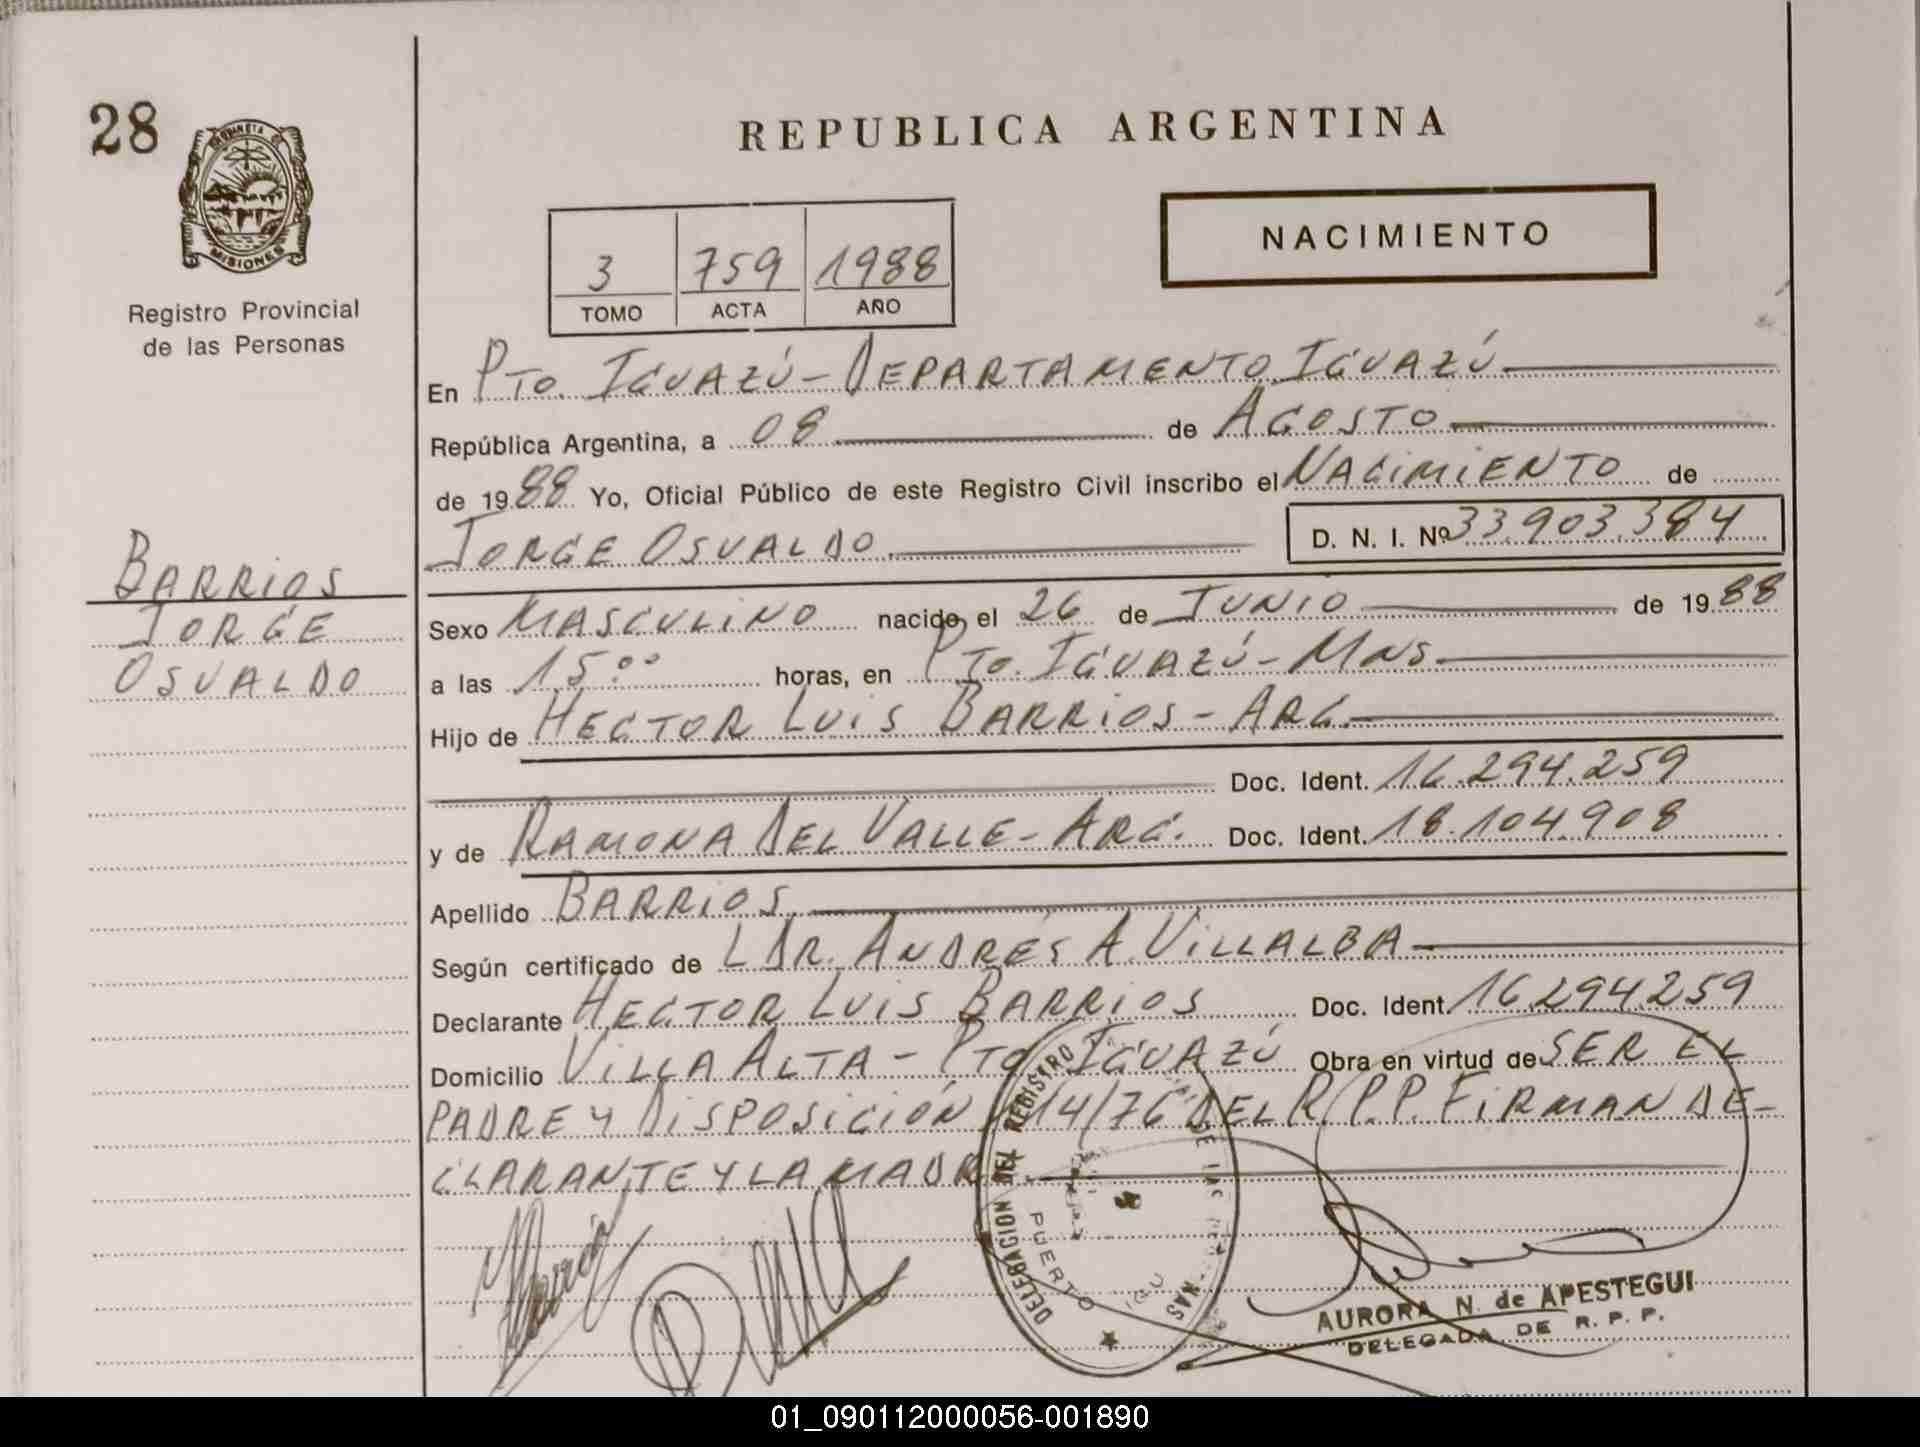 28
MISIONES
Registro Provincial
de las Personas
REPUBLICA ARGENTINA
NACIMIENTO
3 759 1988
TOMO ACTA AÑO
En PTO. IGUAZÚ - DEPARTAMENTO IGUAZÚ
República Argentina, a 08 de AGOSTO
de 1988 Yo, Oficial Público de este Registro Civil inscribo el NACIMIENTO de
JORGE OSVALDO D. N. I. Nº 33.903.384
BARRIOS
JORGE
OSVALDO
Sexo MASCULINO nacido el 26 de JUNIO de 1988
a las 15°° horas, en PTO. IGUAZÚ - MNS.
Hijo de HECTOR LUIS BARRIOS - ARG.
Doc. Ident. 16.294.259
y de RAMONA DEL VALLE - ARG. Doc. Ident. 18.104.908
Apellido BARRIOS
Según certificado de L DR. ANDRÉS A. VILLALBA
Declarante HECTOR LUIS BARRIOS Doc. Ident. 16.294.259
Domicilio VILLA ALTA - PTO IGUAZÚ Obra en virtud de SER EL
PADRE Y DISPOSICIÓN 14/76 DEL R.P.P. FIRMAN DE-
CLARANTE Y LA MADRE
DELEGACION DEL REGISTRO
PUERTO
AURORA N. de APESTEGUI
DELEGADA DE R. P. P.
01_090112000056-001890